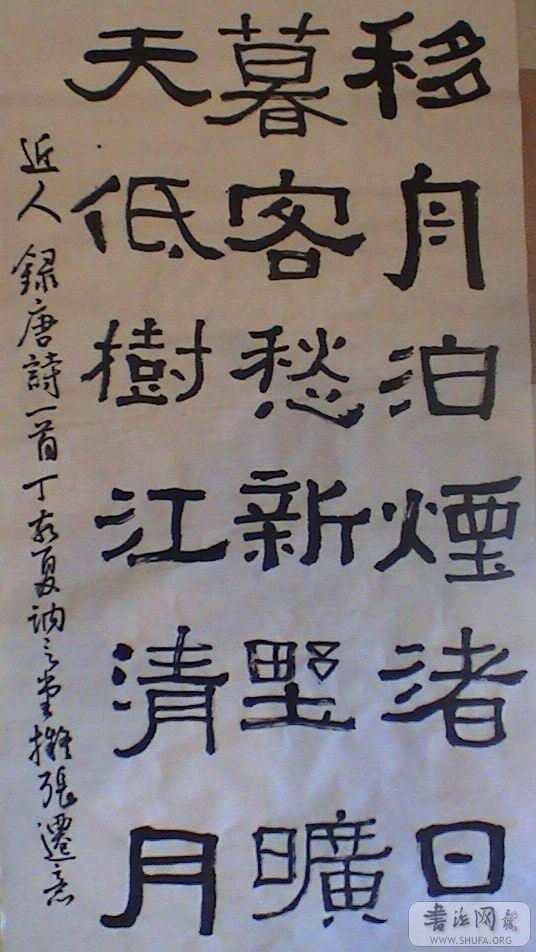 移舟泊煙渚日
暮客愁新野曠
天低樹江清月
近人 録唐詩一首丁亥夏訥堂擬張遷意
書法网
WWW.SHUFA.ORG